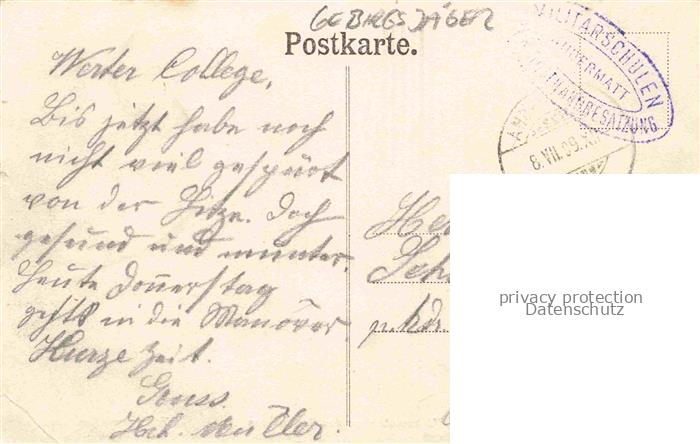 GEBIRGSJÄGER
Postkarte.
MILITÄRSCHULEN
ANDERMATT
GOTTHARDBESATZUNG
AND
8.VII.09.XI
Werter College,
Bis jetzt habe noch
nicht viel gespürt
von der Hitze. Doch
gesund und munter.
Heute Donnerstag
geht's in die Manöver
Kurze Zeit.
Gruss.
He
Sch
p. Adr.
privacy protection
Datenschutz